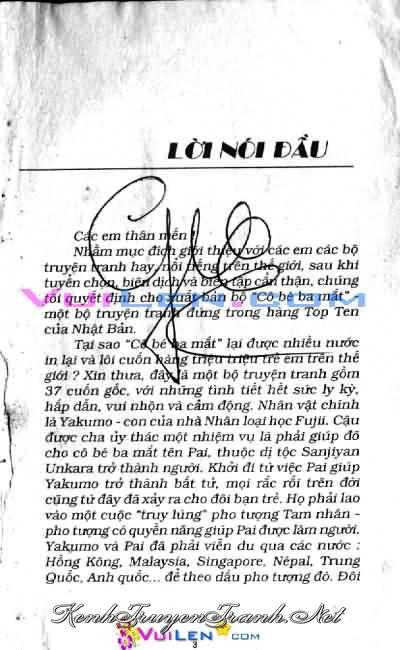 LỜI NÓI ĐẦU
Các em thân mến !
Nhằm mục đích giới thiệu với các em các bộ
truyện tranh hay, nổi tiếng trên thế giới, sau khi
tuyển chọn, biên dịch và biên tập cẩn thận, chúng
tôi quyết định cho xuất bản bộ "Cô bé ba mắt",
một bộ truyện tranh đứng trong hàng Top Ten
của Nhật Bản.
Tại sao "Cô bé ba mắt" lại được nhiều nước
in lại và lôi cuốn hàng triệu triệu trẻ em trên thế
giới ? Xin thưa, đây là một bộ truyện tranh gồm
37 cuốn gốc, với những tình tiết hết sức ly kỳ,
hấp dẫn, vui nhộn và cảm động. Nhân vật chính
là Yakumo - con của nhà Nhân loại học Fujii. Cậu
được cha ủy thác một nhiệm vụ là phải giúp đỡ
cho cô bé ba mắt tên Pai, thuộc dị tộc Sanjiyan
Unkara trở thành người. Khởi đi từ việc Pai giúp
Yakumo trở thành bất tử, mọi rắc rối trên đời
cũng từ đây đã xảy ra cho đôi bạn trẻ. Họ phải lao
vào một cuộc "truy lùng" pho tượng Tam nhãn -
pho tượng có quyền năng giúp Pai được làm người.
Yakumo và Pai đã phải viễn du qua các nước :
Hồng Kông, Malaysia, Singapore, Népal, Trung
Quốc, Anh quốc... để theo dấu pho tượng đó. Đôi
KenhTruyenTranh.Net
VUILEN.COM
3